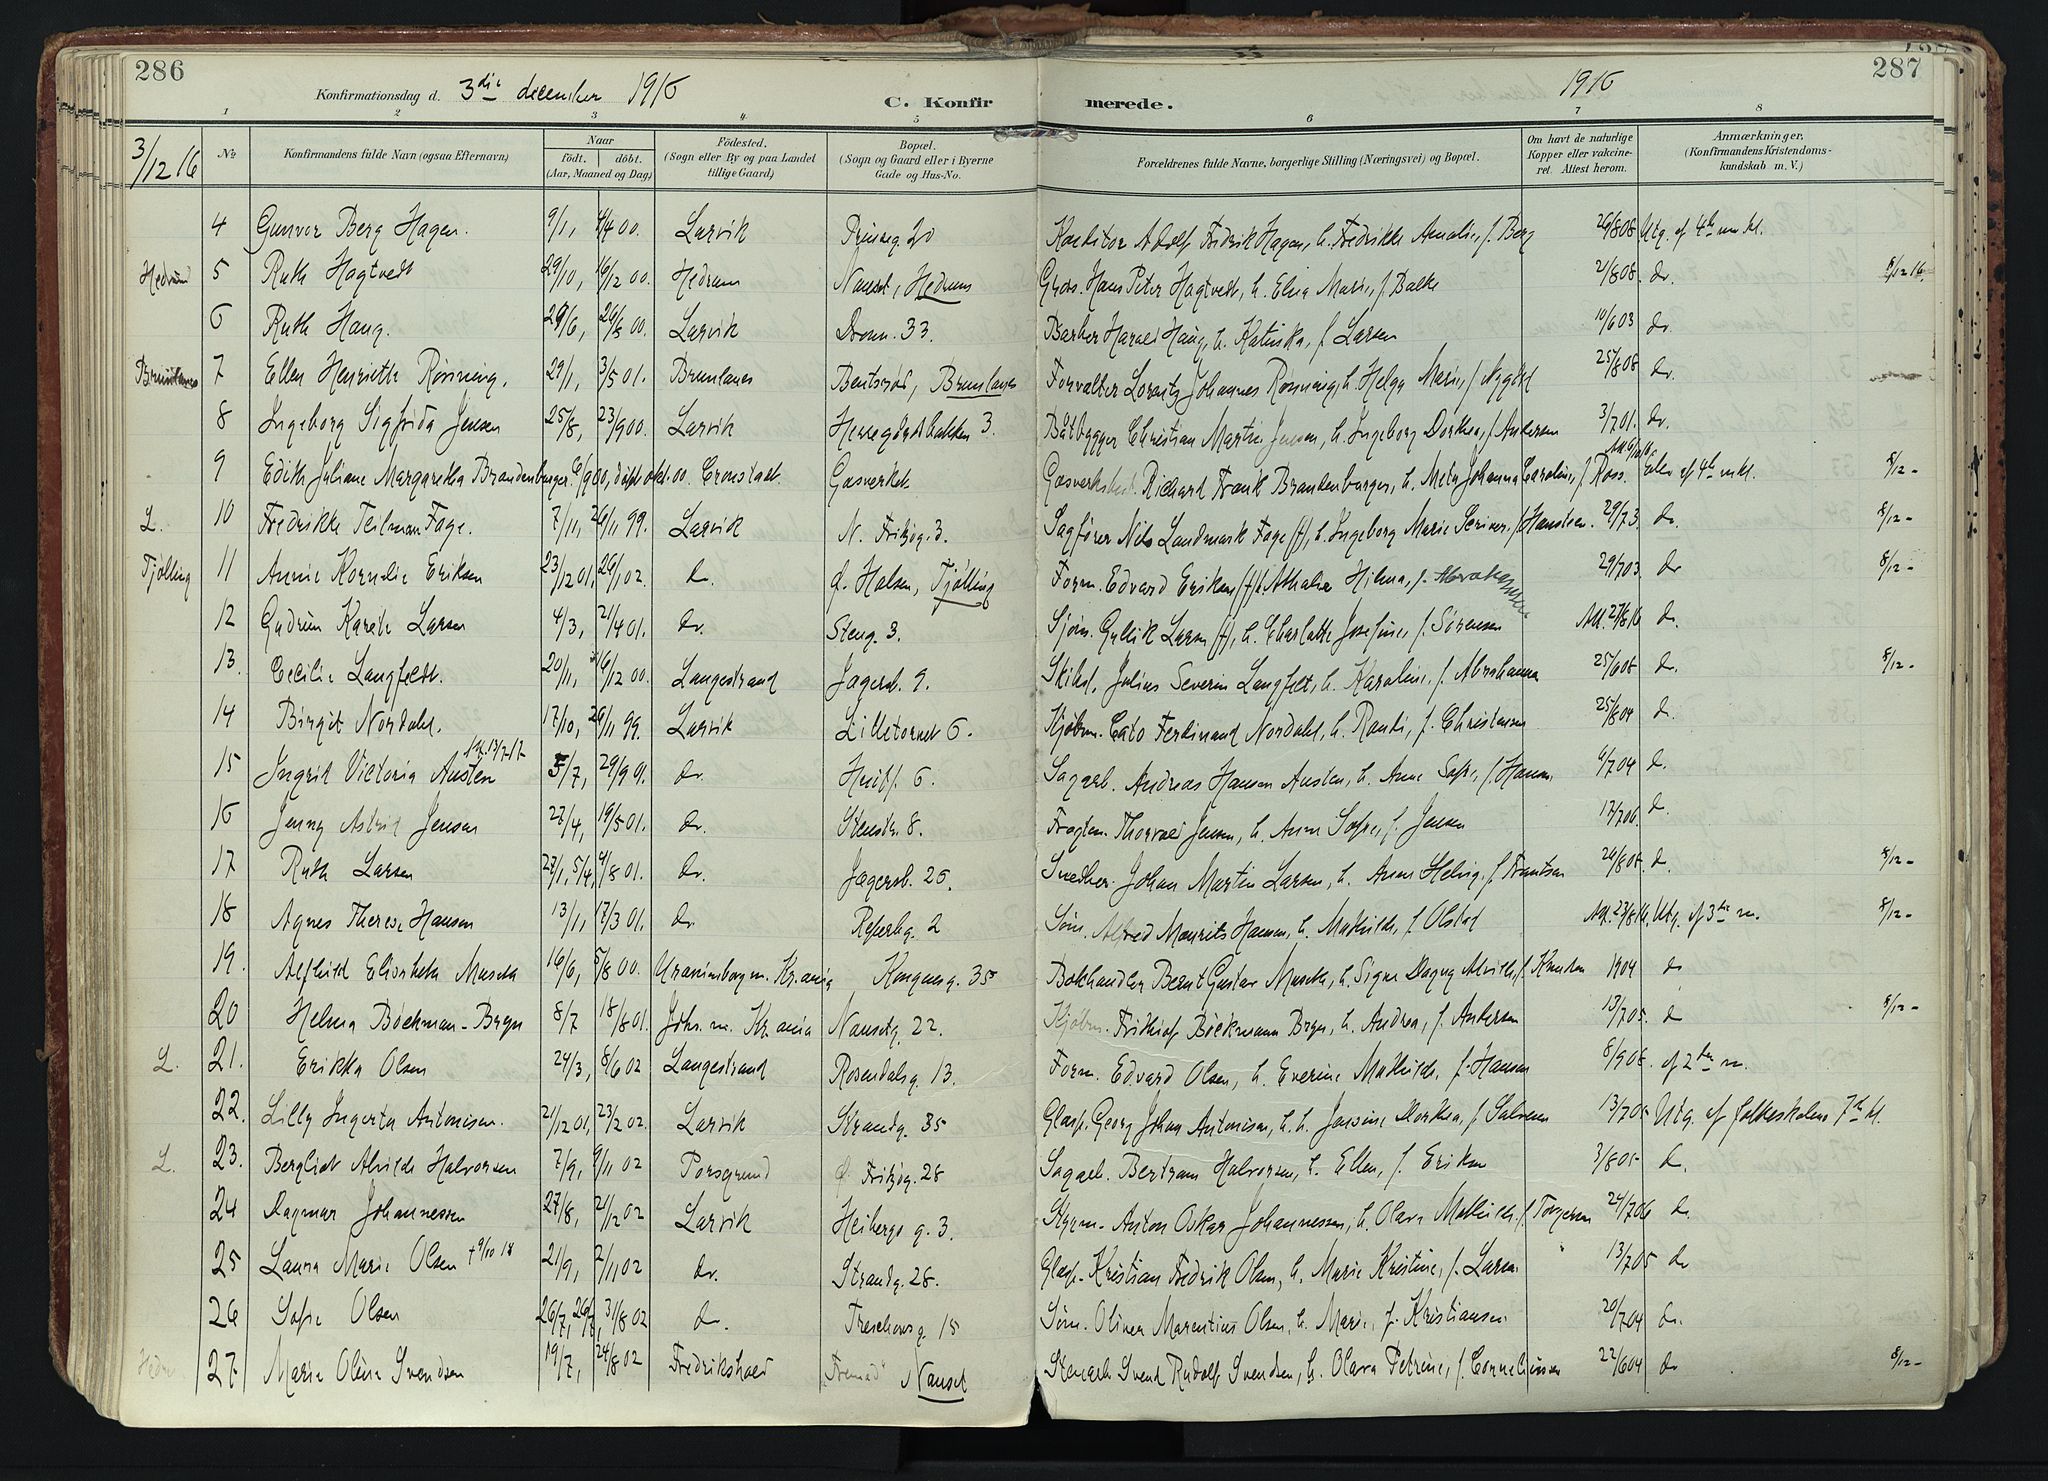 286
Konfirmationsdag d. 3die december 1916
C. Konfir
merede.
1916
287
1 2 3 4 5 6 7 8
3/12 16
No Konfirmandens fulde Navn (ogsaa Efternavn) Naar født. døbt. (Aar, Maaned og Dag) Fødested. (Sogn eller By og paa Landet tillige Gaard) Bopæl. (Sogn og Gaard eller i Byerne Gade og Hus-No. Forældrenes fulde Navne, borgerlige Stilling (Næringsvei) og Bopæl. Om havt de naturlige Kopper eller vakcineret. Attest herom. Anmærkninger. (Konfirmandens Kristendomskundskab m. V.)
4 Gunvor Berg Hagen. 9/1, 4/4 00. Larvik Prinseg. 20 Konditor Adolf Fredrik Hagen, h. Fredrikke Amalie, f. Berg 26/8 08 Utg. af 4de m kl.
Hedrum 5 Ruth Hagtvedt 29/10, 16/12 00. Hedrum Nanset, Hedrum Hans Peter Hagtvedt, h. Elisa Marie, f. Balke 2/8 08. do. 8/12 16.
6 Ruth Haug. 29/6, 26/8 00. Larvik Dronn. 33. Barber Harald Haug, h. Katinka, f. Larsen 10/6 03 do
Brunlanes 7 Ellen Henriette Rønning. 29/1, 3/5 01. Brunlanes Bentsrød, Brunlanes Forvalter Lorentz Johannes Rønning, h. Helga Marie, f. 25/8 08 do.
8 Ingeborg Sigfrida Jensen 25/8, 23/9 00. Larvik Herregårdsbakken 3. Båtbygger Christian Martin Jensen, h. Ingeborg Dorthea, f. Andersen 3/7 01. do.
9 Edith Juliane Margaretha Brandenburger. 6/9 00, døbt okt. 00. Cronstadt. Gasverket Gasverksbest. Richard Frank Brandenburger, h. Meta Johanna Caroline, f. Ross. Elev af 4de m kl. 8/12 -
L. 10 Fredrikke Teilman Fage. 7/11, 26/11 99. Larvik N. Fritzøg. 3. Sagfører Nils Landmark Fage (†), h. Ingeborg Marie Scriver, f. Hansteen. 29/7 3. do. 8/12 -
Tjølling 11 Annie Kornelie Eriksen 23/12 01, 26/1 02. do. ø. Halsen, Tjølling Form. Edvard Eriksen (†) h. Athalie Hilma, f. Abrahamsen 29/7 03. do 8/12 -
12 Gudrun Karete Larsen 4/3, 21/4 01. do. Steng. 3. Sjøm. Gullik Larsen (†), h. Charlotte Josefine, f. Sørensen Att. 27/8 16 do.
13. Cecilie Langfeldt. 20/11, 26/12 00. Langestrand Jagersb. 9. Skibsf. Julius Severin Langfelt, h. Karoline, f. Abrahamsen 25/6 08 do. 8/12 -
14 Birgit Nordahl. 17/10, 26/11 99. Larvik Lilletorvet 6. Kjøbm. Cato Ferdinand Nordahl, h. Randi, f. Christensen 25/8 04 do.
15 Ingrid Victoria Austen 5/7, 29/9 01. do. Huitf. 6. Sagarb. Andreas Hansen Austen, h. Anne Sofie, f. Hansen 6/7 04 do.
16 Jenny Astrid Jensen 27/4, 19/5 01. do. Stenstr. 8. Fragtem. Thorvald Jensen, h. Anna Sofie, f. Jensen 13/7 06. do
17 Ruth Larsen 27/1, 5/4, 4/8 01. do. Jægersb. 25. Snedker. Johan Martin Larsen, h. Anna Helvig, f. Frantsen 26/8 08. do. 8/12 -
18 Agnes Therese Hansen 13/1, 17/3 01. do Reperbg. 2 Søm. Alfred Mauritz Hansen, h. Mathilde, f. Olstad Att. 23/8 16. Utg. af 3die m. 8/12 -
19. Alfhild Elisabeth Musæth 16/6, 5/8 00. Uranienborg m. Kr.ania Kongensg. 35 Bokhandler Bernt Gustav Musæth, h. Signe Dagny Alvilde, f. Knutsen 1904 do
20 Helena Bøckman-Bryn 8/7 18/8 01. Johs. m. Kr.ania Nansetg. 22. Kjøbm. Fridtiof Bøckmann Bryn, h. Andrea, f. Andersen 13/7 05. do 8/12 -
L. 21. Erikka Olsen 24/3, 8/6 02 Langestrand Rosendalsg. 13. Form. Edvard Olsen, h. Everine Mathilde, f. Hansen 8/9 08 af 2den m.
22. Lilly Ingerta Antonisen. 21/12 01, 23/2 02. Larvik Strandg. 35 Glasp. Georg Johan Antonisen, h. h. Jensine Dorthea, f. Salvesen 13/7 05 Utg. af folkeskolens 7de kl.
L. 23. Bergliot Alvilde Halvorsen 7/9, 9/11 02 Porsgrund ø. Fritzøg. 28 Sagarb. Bertram Halvorsen, h. Ellen, f. Eriksen 3/8 05 do.
24 Dagmar Johannessen 27/8, 21/12 02 Larvik Heibergs g. 3. Styrm. Anton Oskar Johannessen, h. Olava Mathilde, f. Torgersen 24/7 06 do.
25 Laura Marie Olsen † 9/10 18 21/9, 2/11 02 do. Strandg. 28. Glasp. Kristian Fredrik Olsen, h. Marie Kristine, f. Larsen 13/7 05 do
26 Sofie Olsen 26/7, 31/8 02 do. Treschowsg. 15 Søm. Oliver Marentius Olsen, h. Marie, f. Kristiansen 20/7 04 do.
Hedr. 27. Marie Oline Svendsen 19/7, 24/8 02 Fredrikshald "Fremad" Nanset Stenarb. Svend Rudolf Svendsen, h. Olava Petrine, f. Corneliussen 22/6 04 do 8/12 -